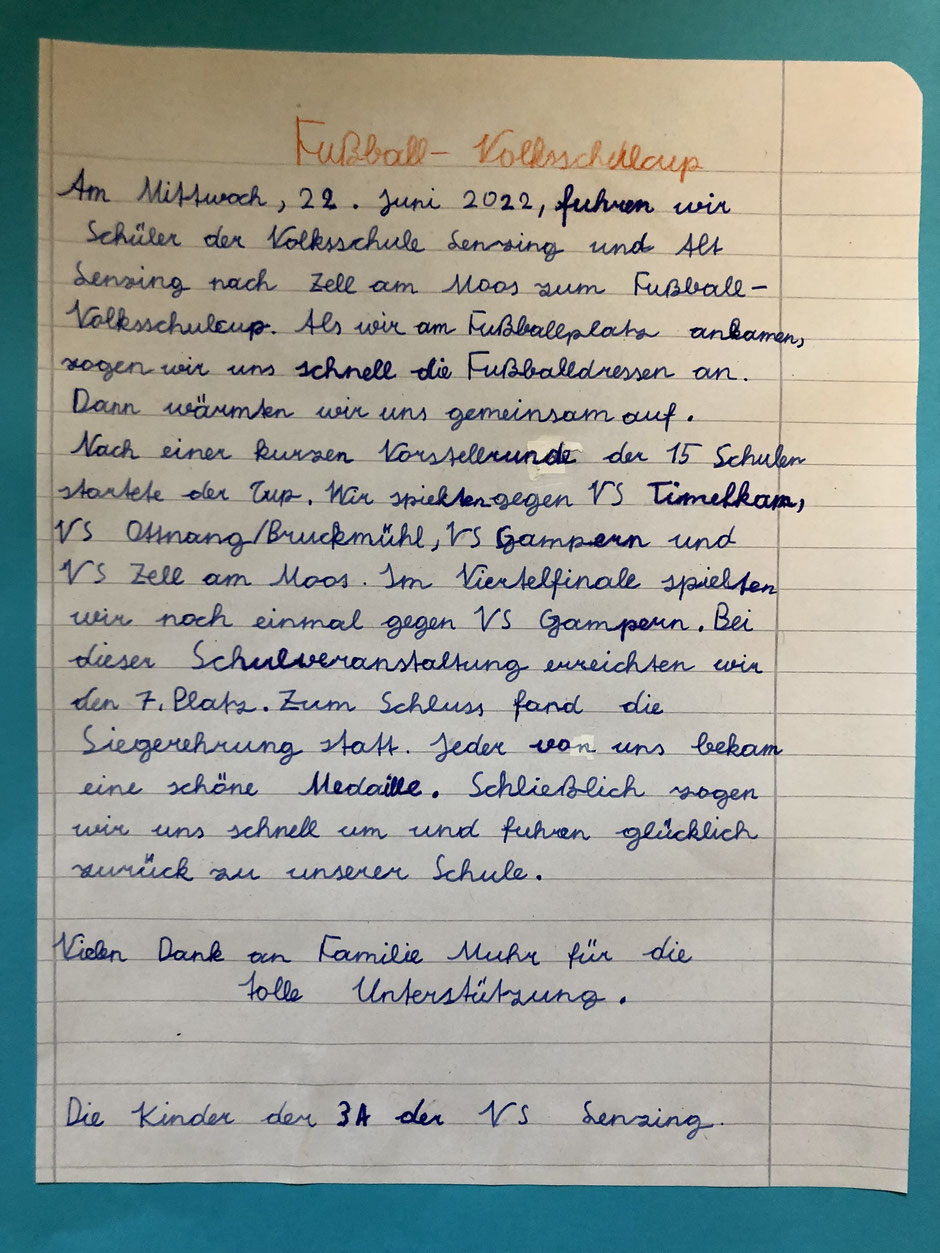 Fußball- Volksschulcup
Am Mittwoch, 22. Juni 2022, fuhren wir
Schüler der Volksschule Lenzing und Alt
Lenzing nach Zell am Moos zum Fußball-
Volksschulcup. Als wir am Fußballplatz ankamen,
zogen wir uns schnell die Fußballdressen an.
Dann wärmten wir uns gemeinsam auf.
Nach einer kurzen Vorstellrunde der 15 Schulen
startete der Cup. Wir spielten gegen VS Timelkam,
VS Ottnang/Bruckmühl, VS Gampern und
VS Zell am Moos. Im Viertelfinale spielten
wir noch einmal gegen VS Gampern. Bei
dieser Schulveranstaltung erreichten wir
den 7. Platz. Zum Schluss fand die
Siegerehrung statt. Jeder von uns bekam
eine schöne Medaille. Schließlich zogen
wir uns schnell um und fuhren glücklich
zurück zu unserer Schule.
Vielen Dank an Familie Muhr für die
tolle Unterstützung.
Die Kinder der 3A der VS Lenzing.